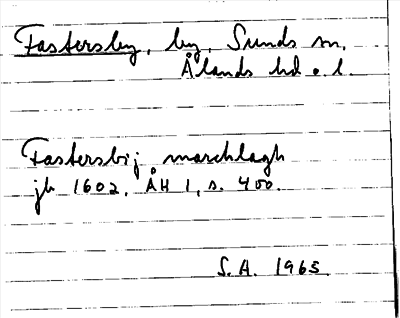 Fastersby, by, Sunds sn,
Ålands hd o. l.
Fastersbij marchlagh
jb 1602, ÅH 1, s. 400.
S. A. 1965.